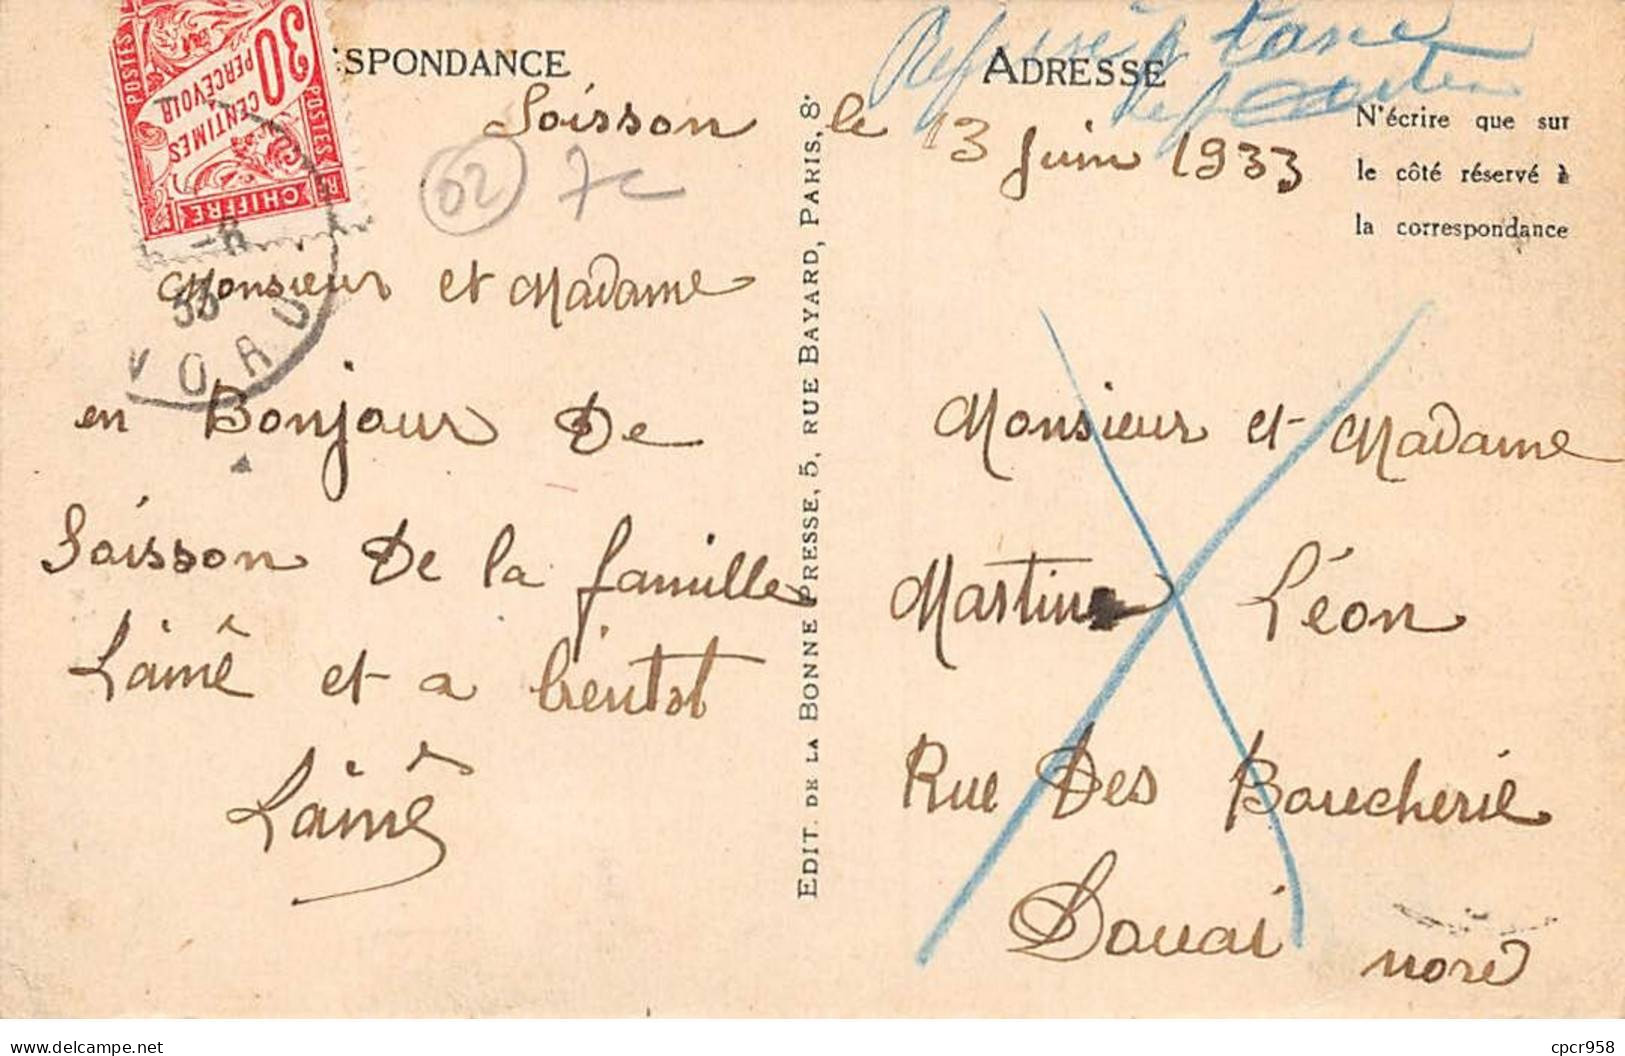 SPONDANCE
ADRESSE
Refusé taxe
N'écrire que sur
le côté réservé à
la correspondance
POSTES
30
CENTIMES
PERCEVOIR
POSTES
CHIFFRE
RF
Soisson le 13 Juin 1933
02 7c
Monsieur et Madame
en Bonjour De
Soisson De la famille
Lainê et a bientot
Lainê
EDIT. DE LA BONNE PRESSE, 5, RUE BAYARD, PARIS, 8e
Monsieur et Madame
Martin Léon
Rue Des Boucherie
Douai
nord
delcampe.net
cpcr958